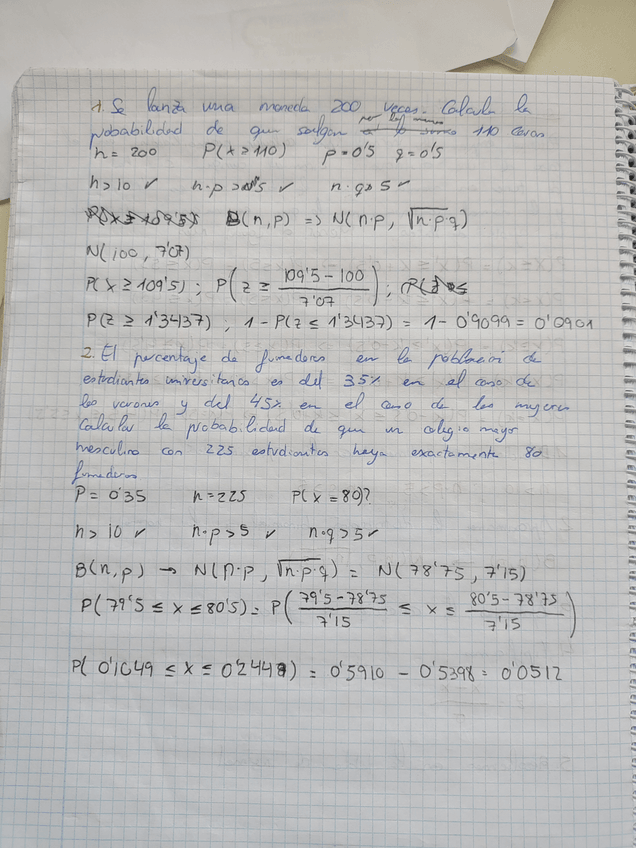 1. Se lanza una moneda 200 veces. Calcula la
por lo menos
probabilidad de que salgan 110 caras
n = 200 P(x ≥ 110) p = 0'5 q = 0'5
n > 10 ✓ n·p > 5 ✓ n·q > 5 ✓
B(n, p) => N(n·p, √n·p·q)
N(100, 7'07)
P(x ≥ 109'5) ; P(z ≥ (109'5 - 100)/7'07) ;
P(z ≥ 1'3437) ; 1 - P(z ≤ 1'3437) = 1 - 0'9099 = 0'0901
2. El porcentaje de fumadores en la población de
estudiantes universitarios es del 35% en el caso de
los varones y del 45% en el caso de las mujeres
Calcular la probabilidad de que un colegio mayor
masculino con 225 estudiantes haya exactamente 80
fumadores
P = 0'35 n = 225 P(x = 80)?
n > 10 ✓ n·p > 5 ✓ n·q > 5 ✓
B(n, p) → N(n·p, √n·p·q) = N(78'75, 7'15)
P(79'5 ≤ x ≤ 80'5) = P((79'5 - 78'75)/7'15 ≤ x ≤ (80'5 - 78'75)/7'15)
P(0'1049 ≤ x ≤ 0'2448) = 0'5910 - 0'5398 = 0'0512